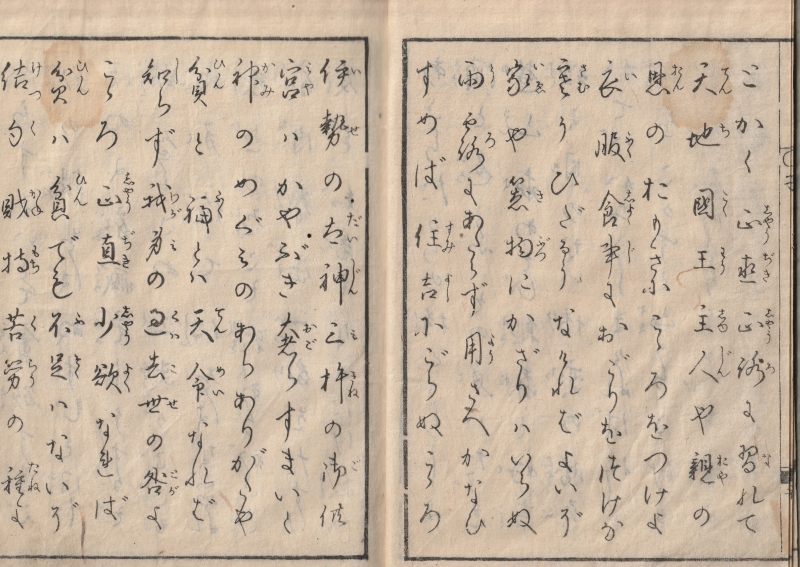 とかく正直正路に習れて
天地國王主人や親の
恩のおもさにこゝろをつけよ
衣服食事におごりをつけな
寒うひだるうなければよいぞ
家や器物にかざりはいらぬ
雨や露にあたらず用さへかなひ
すめば住吉にごらぬこゝろ
伊勢の太神三杵の御供
宮はかやぶき奢らすまいと
神のめぐみのあらありがたや
貧と福とは天命なれば
知らず我身の過去世の咎よ
こゝろ正直少欲なれば
貧は貧でも不足はないぞ
結句賎持苦労の種よ